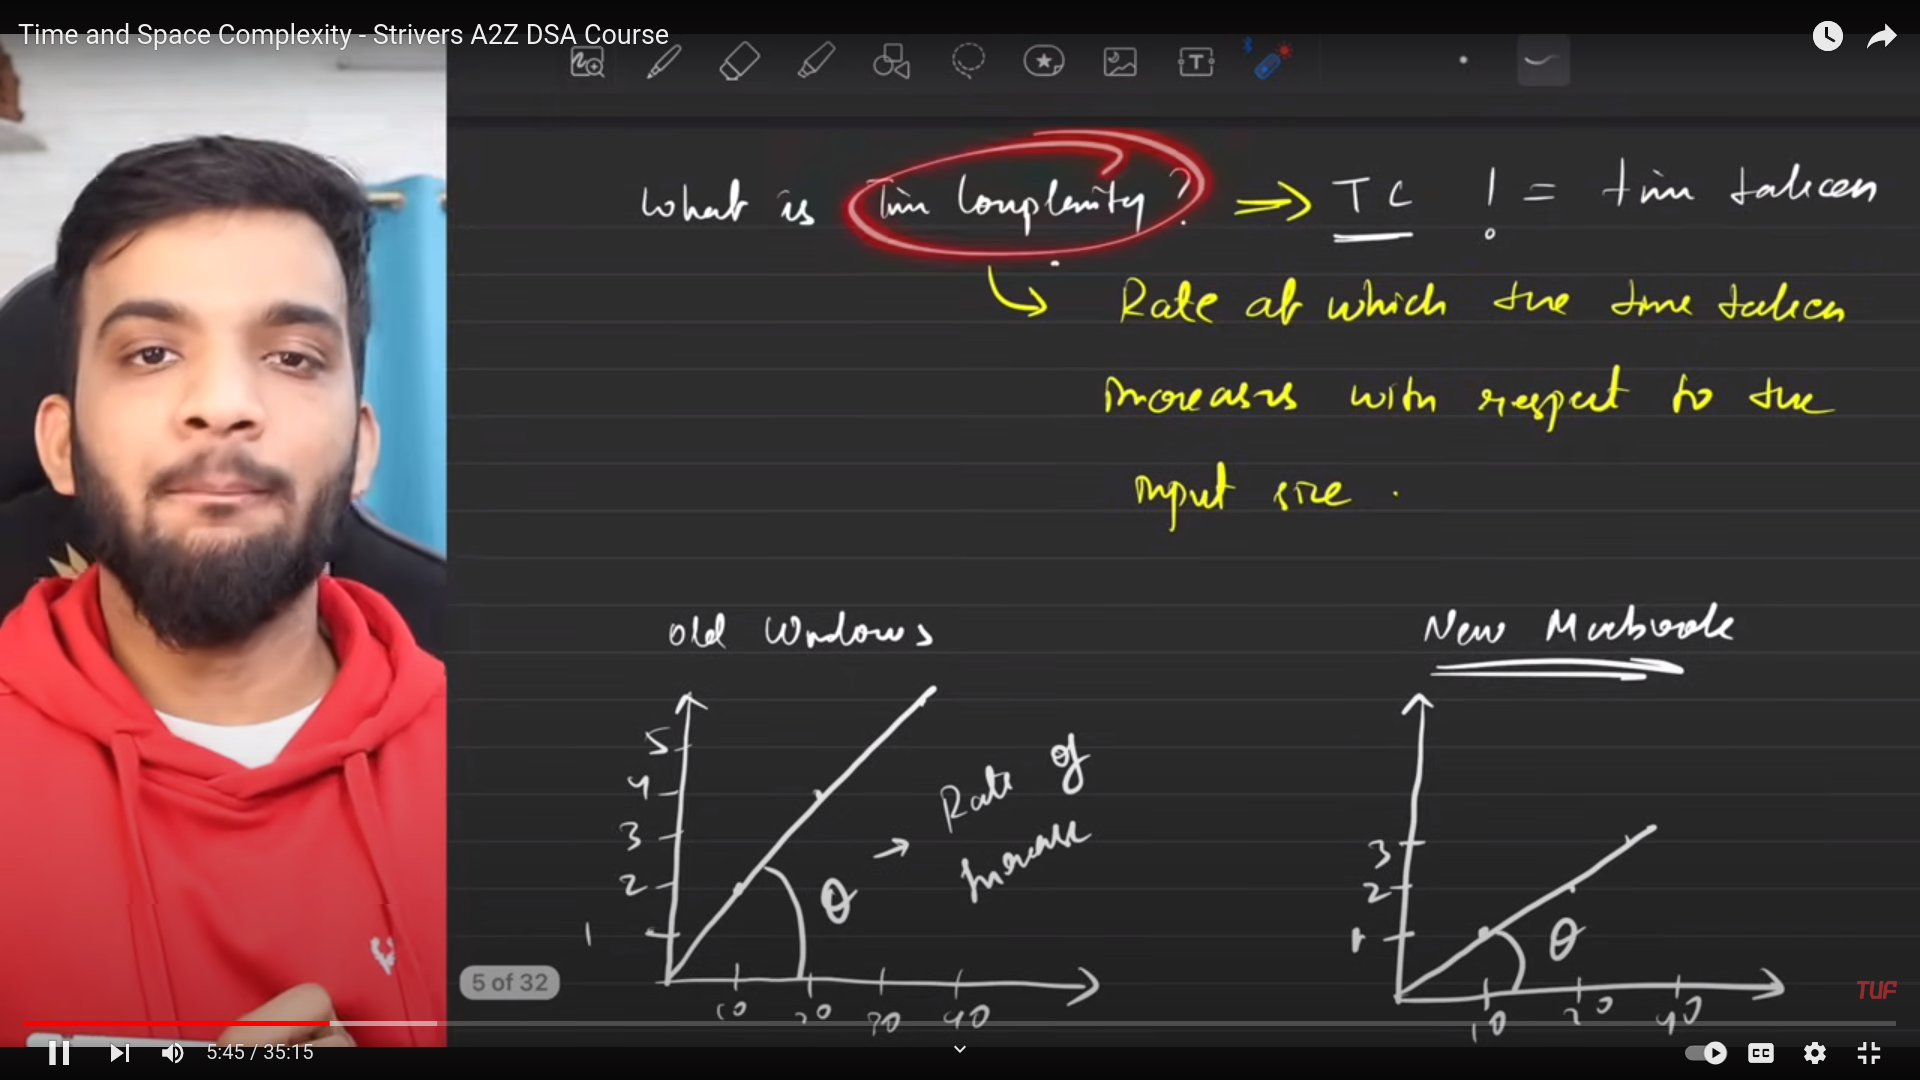 Time and Space Complexity - Strivers A2Z DSA Course
What is Time Complexity? ⇒ TC != time taken
Rate at which the time taken
increases with respect to the
input size.
Old Windows
New Macbook
5
4
3
2
1
10 20 30 40
θ → Rate of
Increase
3
2
1
θ
10 20 40
5 of 32
TUF
5:45 / 35:15
CC